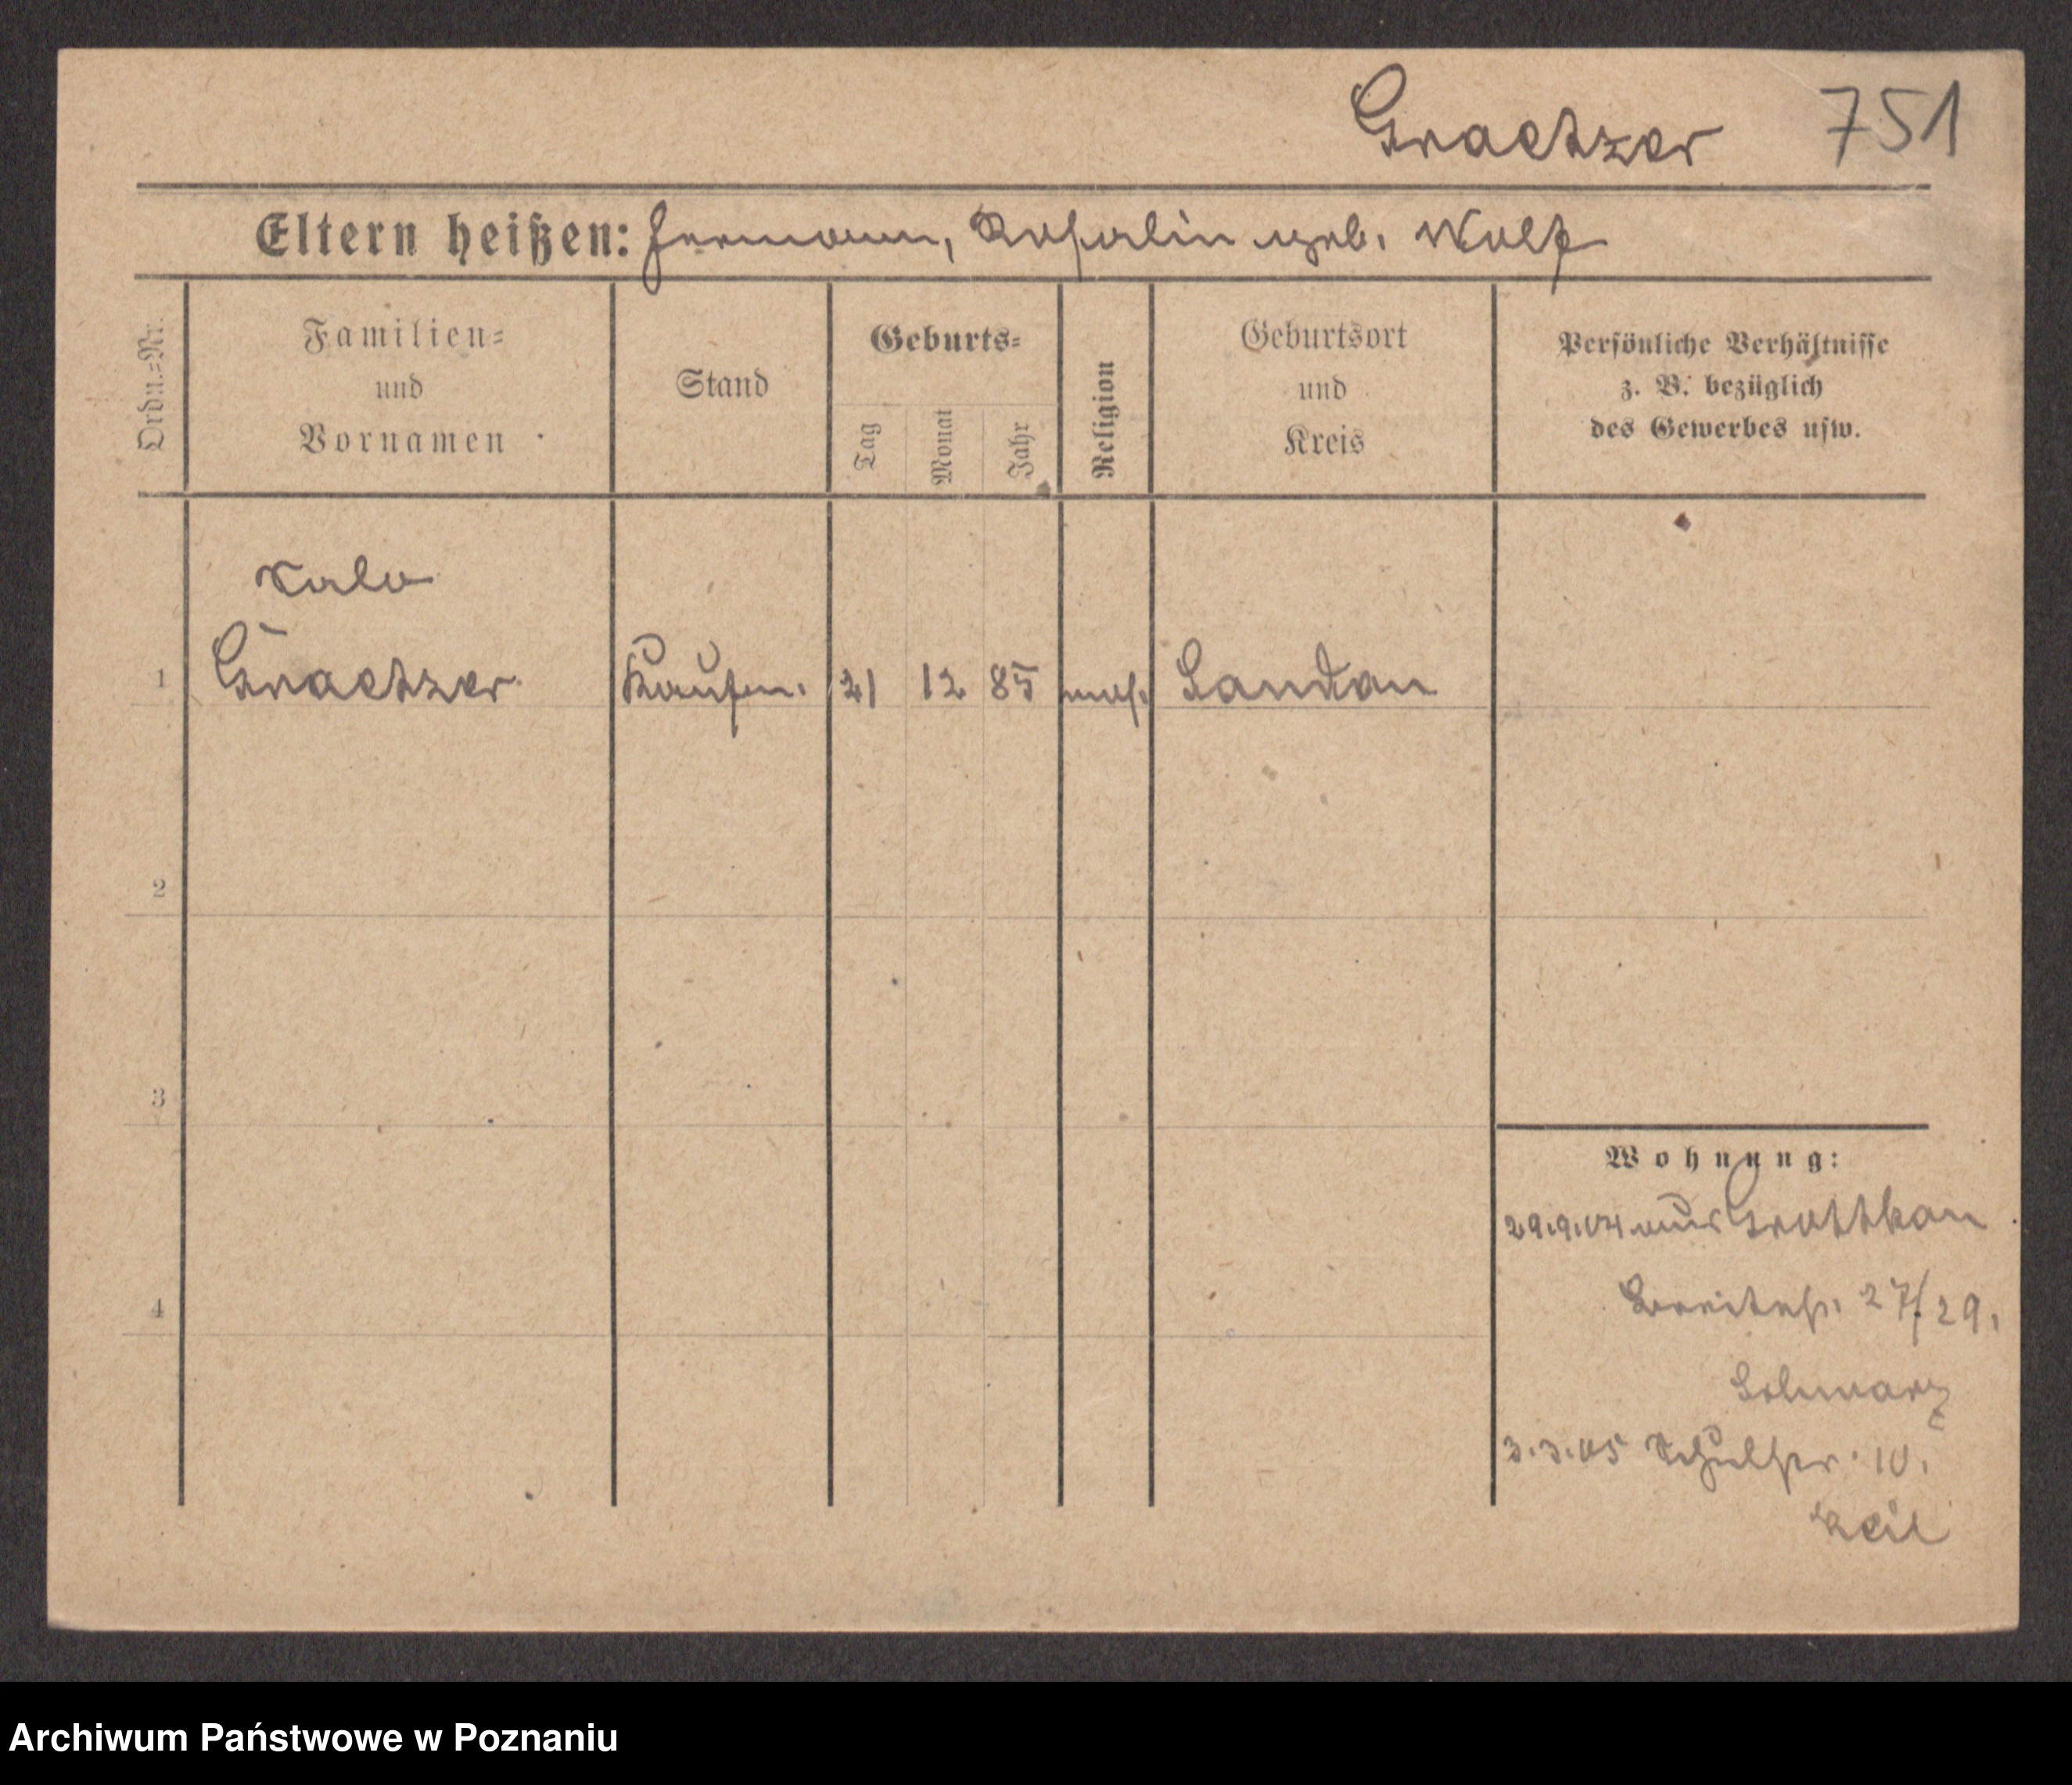 Graetzer 751
Eltern heißen: Hermann, Rosalie geb. Wolff
Ordn.-Nr.
Familien-
und
Vornamen
Stand
Geburts-
Tag
Monat
Jahr
Religion
Geburtsort
und
Kreis
Persönliche Verhältnisse
z. B. bezüglich
des Gewerbes usw.
1 Graetzer Kaufm. 21 12 85 mos. Landau
2
3
4
Wohnung:
29.9.04 aus Grottkau
Breitestr. 27/29.
Schwarz
3.3.05 Schulstr. 10.
Keil
Archiwum Państwowe w Poznaniu